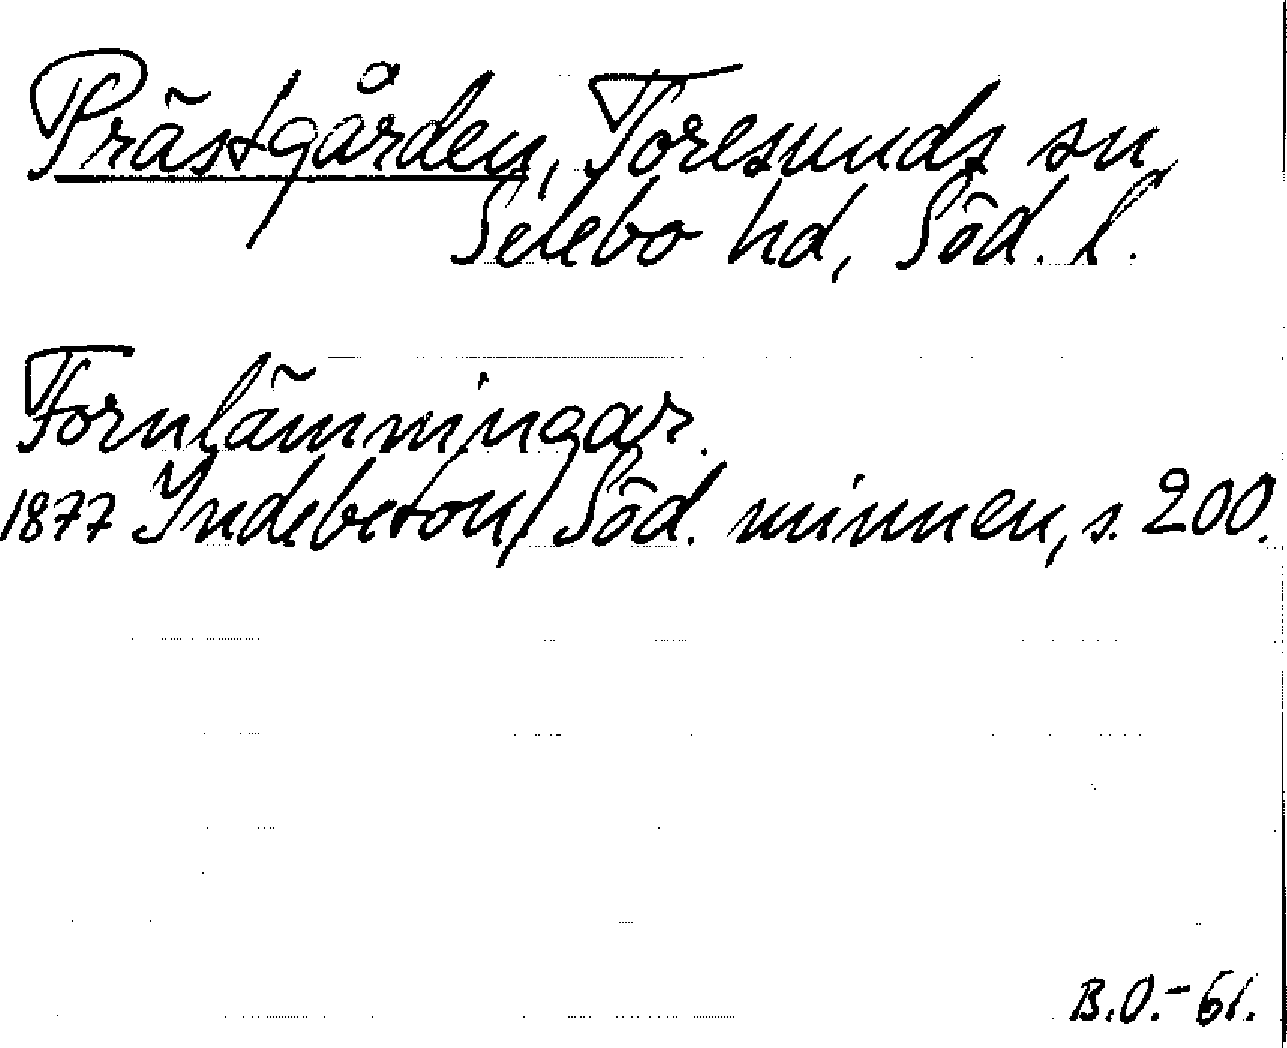 Prästgården, Toresunds sn,
Selebo hd, Söd. l.
Fornlämningar.
1877 Indebetou, Söd. minnen, s. 200.
B.O.-61.